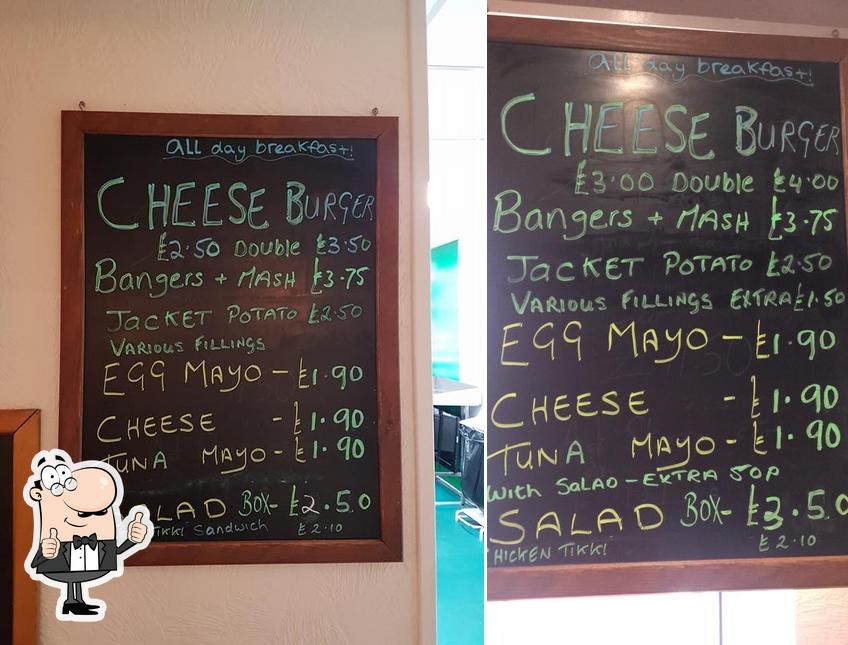 All day breakfast!
CHEESE BURGER
£2.50 DOUBLE £3.50
Bangers + MASH £3.75
JACKET POTATO £2.50
VARIOUS FILLINGS
EGG MAYO - £1.90
CHEESE - £1.90
TUNA MAYO - £1.90
LAD BOX - £2.50
TIKKI Sandwich £2.10
All day breakfast!
CHEESE BURGER
£3.00 DOUBLE £4.00
Bangers + MASH £3.75
JACKET POTATO £2.50
VARIOUS FILLINGS EXTRA £1.50
EGG MAYO - £1.90
CHEESE - £1.90
TUNA MAYO - £1.90
With SALAD - EXTRA 50P
SALAD BOX - £3.50
HICKEN TIKKI £2.10